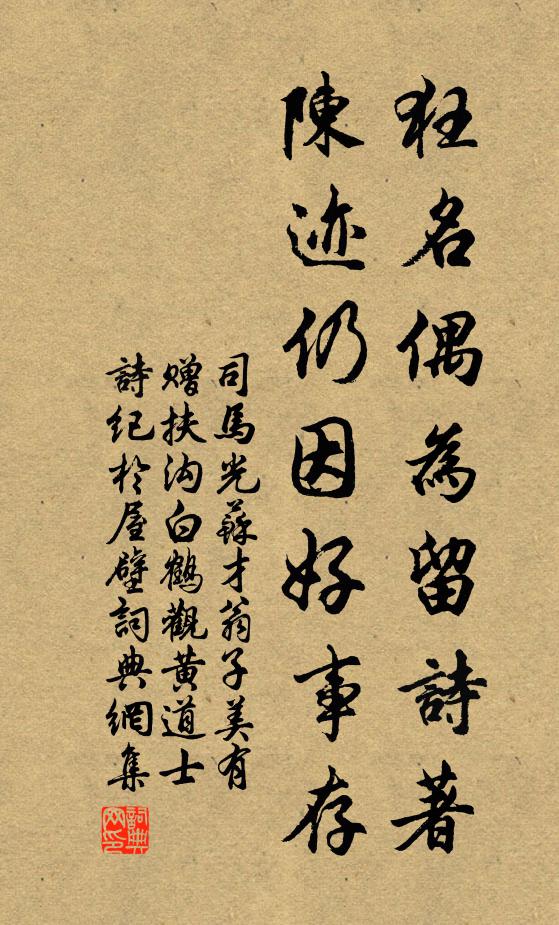 狂名偶為留詩著
陳迹仍因好事存
司馬光蘇才翁子美有
贈扶沟白鶴觀黃道士
詩紀於屋壁詞典網集
詞典
网印